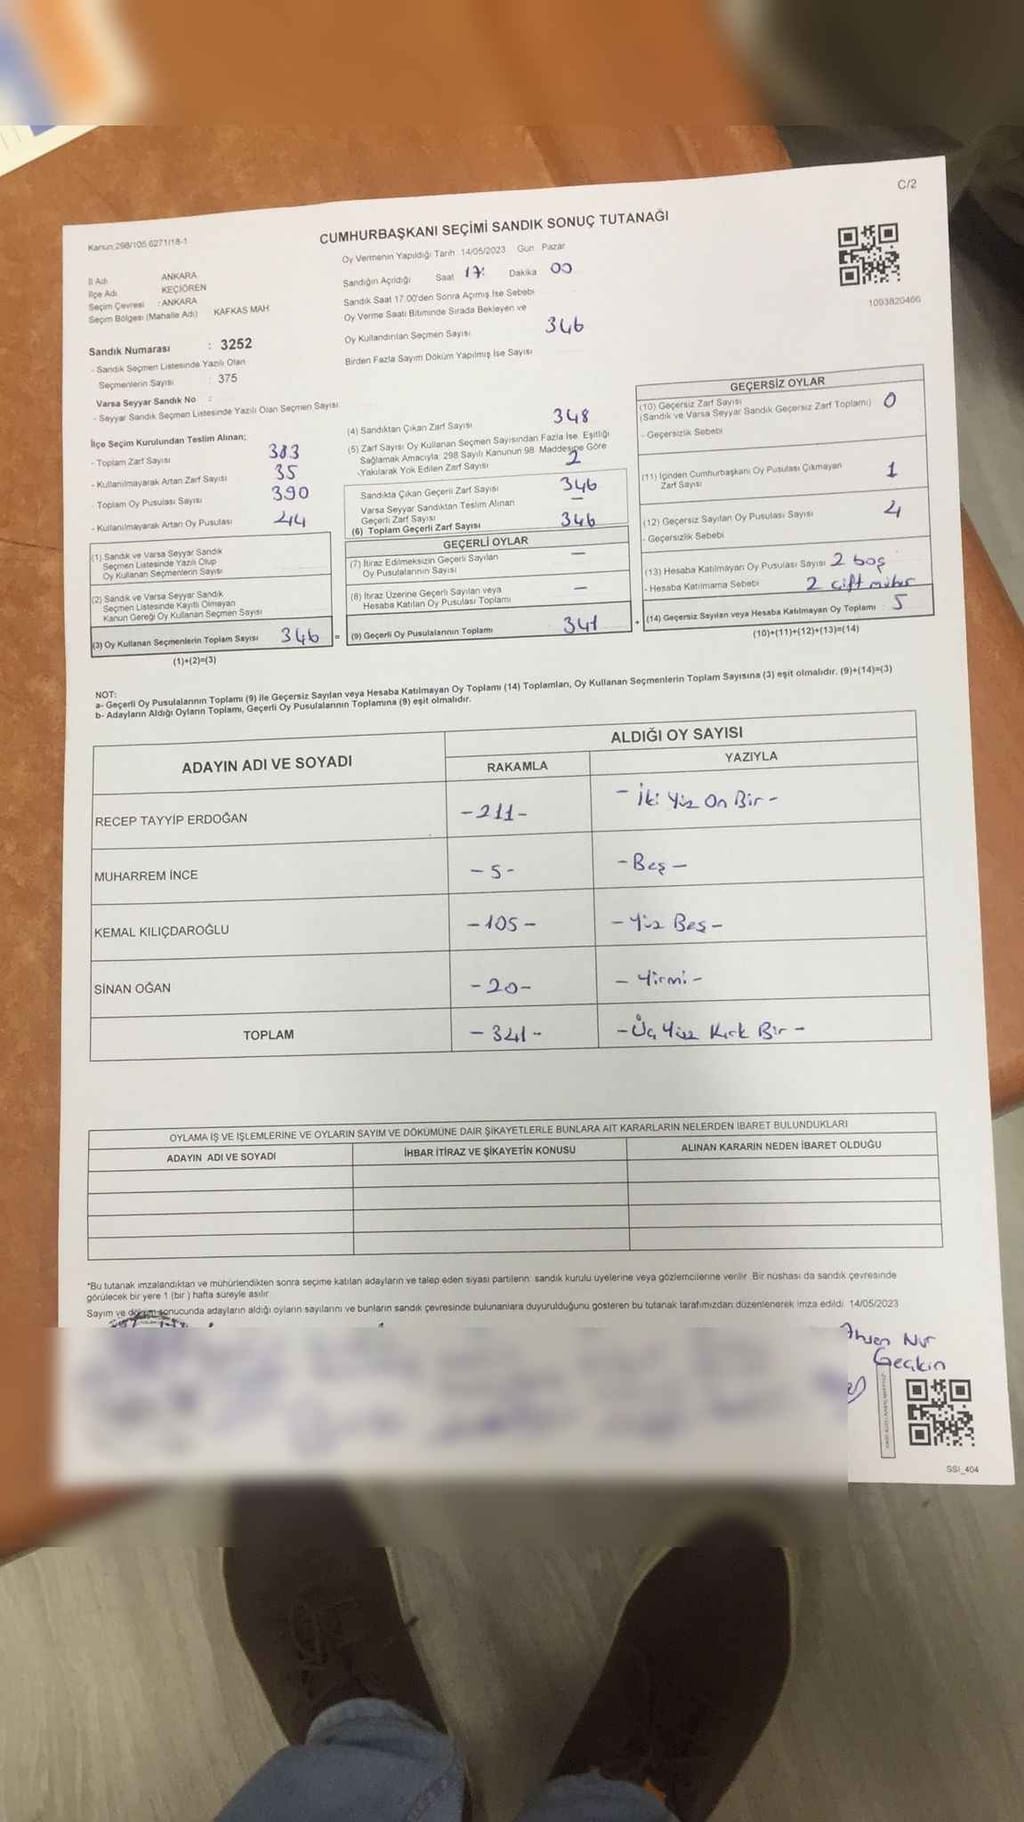 C/2
Kanun:298/105 6271/18-1
CUMHURBAŞKANI SEÇİMİ SANDIK SONUÇ TUTANAĞI
Oy Vermenin Yapıldığı Tarih 14/05/2023 Gün Pazar
İl Adı ANKARA
İlçe Adı KEÇİÖREN
Seçim Çevresi : ANKARA
Seçim Bölgesi (Mahalle Adı) KAFKAS MAH
Sandık Numarası : 3252
- Sandık Seçmen Listesinde Yazılı Olan
Seçmenlerin Sayısı : 375
Varsa Seyyar Sandık No :
- Seyyar Sandık Seçmen Listesinde Yazılı Olan Seçmen Sayısı
Sandığın Açıldığı Saat 17: Dakika 00
Sandık Saat 17.00'den Sonra Açılmış İse Sebebi
Oy Verme Saati Bitiminde Sırada Bekleyen ve
Oy Kullandırılan Seçmen Sayısı 346
Birden Fazla Sayım Döküm Yapılmış İse Sayısı
1003820466
İlçe Seçim Kurulundan Teslim Alınan;
- Toplam Zarf Sayısı 383
- Kullanılmayarak Artan Zarf Sayısı 35
- Toplam Oy Pusulası Sayısı 390
- Kullanılmayarak Artan Oy Pusulası 44
(1) Sandık ve Varsa Seyyar Sandık
Seçmen Listesinde Yazılı Olup
Oy Kullanan Seçmenlerin Sayısı
(2) Sandık ve Varsa Seyyar Sandık
Seçmen Listesinde Kayıtlı Olmayan
Kanun Gereği Oy Kullanan Seçmen Sayısı
(3) Oy Kullanan Seçmenlerin Toplam Sayısı 346 =
(1)+(2)=(3)
(4) Sandıktan Çıkan Zarf Sayısı 348
(5) Zarf Sayısı Oy Kullanan Seçmen Sayısından Fazla İse, Eşitliği
Sağlamak Amacıyla 298 Sayılı Kanunun 98 Maddesine Göre
Yakılarak Yok Edilen Zarf Sayısı 2
Sandıkta Çıkan Geçerli Zarf Sayısı 346
Varsa Seyyar Sandıktan Teslim Alınan
Geçerli Zarf Sayısı —
(6) Toplam Geçerli Zarf Sayısı 346
GEÇERLİ OYLAR
(7) İtiraz Edilmeksizin Geçerli Sayılan
Oy Pusulalarının Sayısı —
(8) İtiraz Üzerine Geçerli Sayılan veya
Hesaba Katılan Oy Pusulası Toplamı —
(9) Geçerli Oy Pusulalarının Toplamı 341 +
GEÇERSİZ OYLAR
(10) Geçersiz Zarf Sayısı
(Sandık ve Varsa Seyyar Sandık Geçersiz Zarf Toplamı) 0
- Geçersizlik Sebebi
(11) İçinden Cumhurbaşkanı Oy Pusulası Çıkmayan
Zarf Sayısı 1
(12) Geçersiz Sayılan Oy Pusulası Sayısı 4
- Geçersizlik Sebebi
(13) Hesaba Katılmayan Oy Pusulası Sayısı 2 boş
- Hesaba Katılmama Sebebi 2 çift mühür
(14) Geçersiz Sayılan veya Hesaba Katılmayan Oy Toplamı 5
(10)+(11)+(12)+(13)=(14)
NOT:
a- Geçerli Oy Pusulalarının Toplamı (9) ile Geçersiz Sayılan veya Hesaba Katılmayan Oy Toplamı (14) Toplamları, Oy Kullanan Seçmenlerin Toplam Sayısına (3) eşit olmalıdır. (9)+(14)=(3)
b- Adayların Aldığı Oyların Toplamı, Geçerli Oy Pusulalarının Toplamına (9) eşit olmalıdır.
ADAYIN ADI VE SOYADI ALDIĞI OY SAYISI
RAKAMLA YAZIYLA
RECEP TAYYİP ERDOĞAN -211- - İki Yüz On Bir -
MUHARREM İNCE - 5 - - Beş -
KEMAL KILIÇDAROĞLU -105- - Yüz Beş -
SİNAN OĞAN -20- - Yirmi -
TOPLAM -341- - Üç Yüz Kırk Bir -
OYLAMA İŞ VE İŞLEMLERİNE VE OYLARIN SAYIM VE DÖKÜMÜNE DAİR ŞİKAYETLERLE BUNLARA AİT KARARLARIN NELERDEN İBARET BULUNDUKLARI
ADAYIN ADI VE SOYADI İHBAR İTİRAZ VE ŞİKAYETİN KONUSU ALINAN KARARIN NEDEN İBARET OLDUĞU
*Bu tutanak imzalandıktan ve mühürlendikten sonra seçime katılan adayların ve talep eden siyasi partilerin sandık kurulu üyelerine veya gözlemcilerine verilir. Bir nüshası da sandık çevresinde
görülecek bir yere 1 (bir) hafta süreyle asılır
Sayım ve döküm sonucunda adayların aldığı oyların sayılarını ve bunların sandık çevresinde bulunanlara duyurulduğunu gösteren bu tutanak tarafımızdan düzenlenerek imza edildi 14/05/2023
Nur
Geçkin
SSI_404